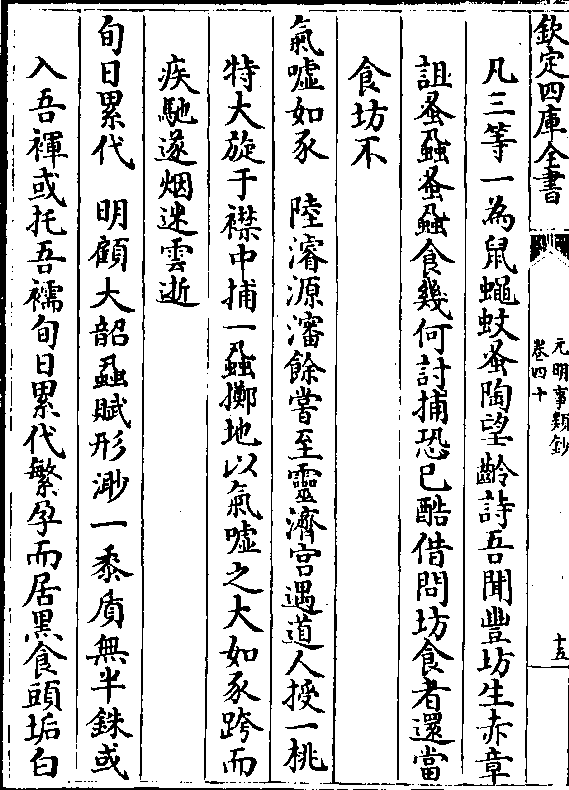 欽定四庫全書
元明事類鈔
卷四十
十五
凡三等一為鼠蠅蚊蚤陶望齡詩吾聞豐坊生赤章
詛蚤蝨蚤蝨食幾何討捕恐已酷借問坊食者還當
食坊不
氣噓如豕　陸濬源瀋餘嘗至靈濟宮遇道人授一桃
特大旋于襟中捕一蝨擲地以氣噓之大如豕跨而
疾馳遂烟迷雲逝
旬日累代　明顧大韶蝨賦形渺一黍質無半銖或
入吾褌或托吾襦旬日累代繁孕而居黑食頭垢白